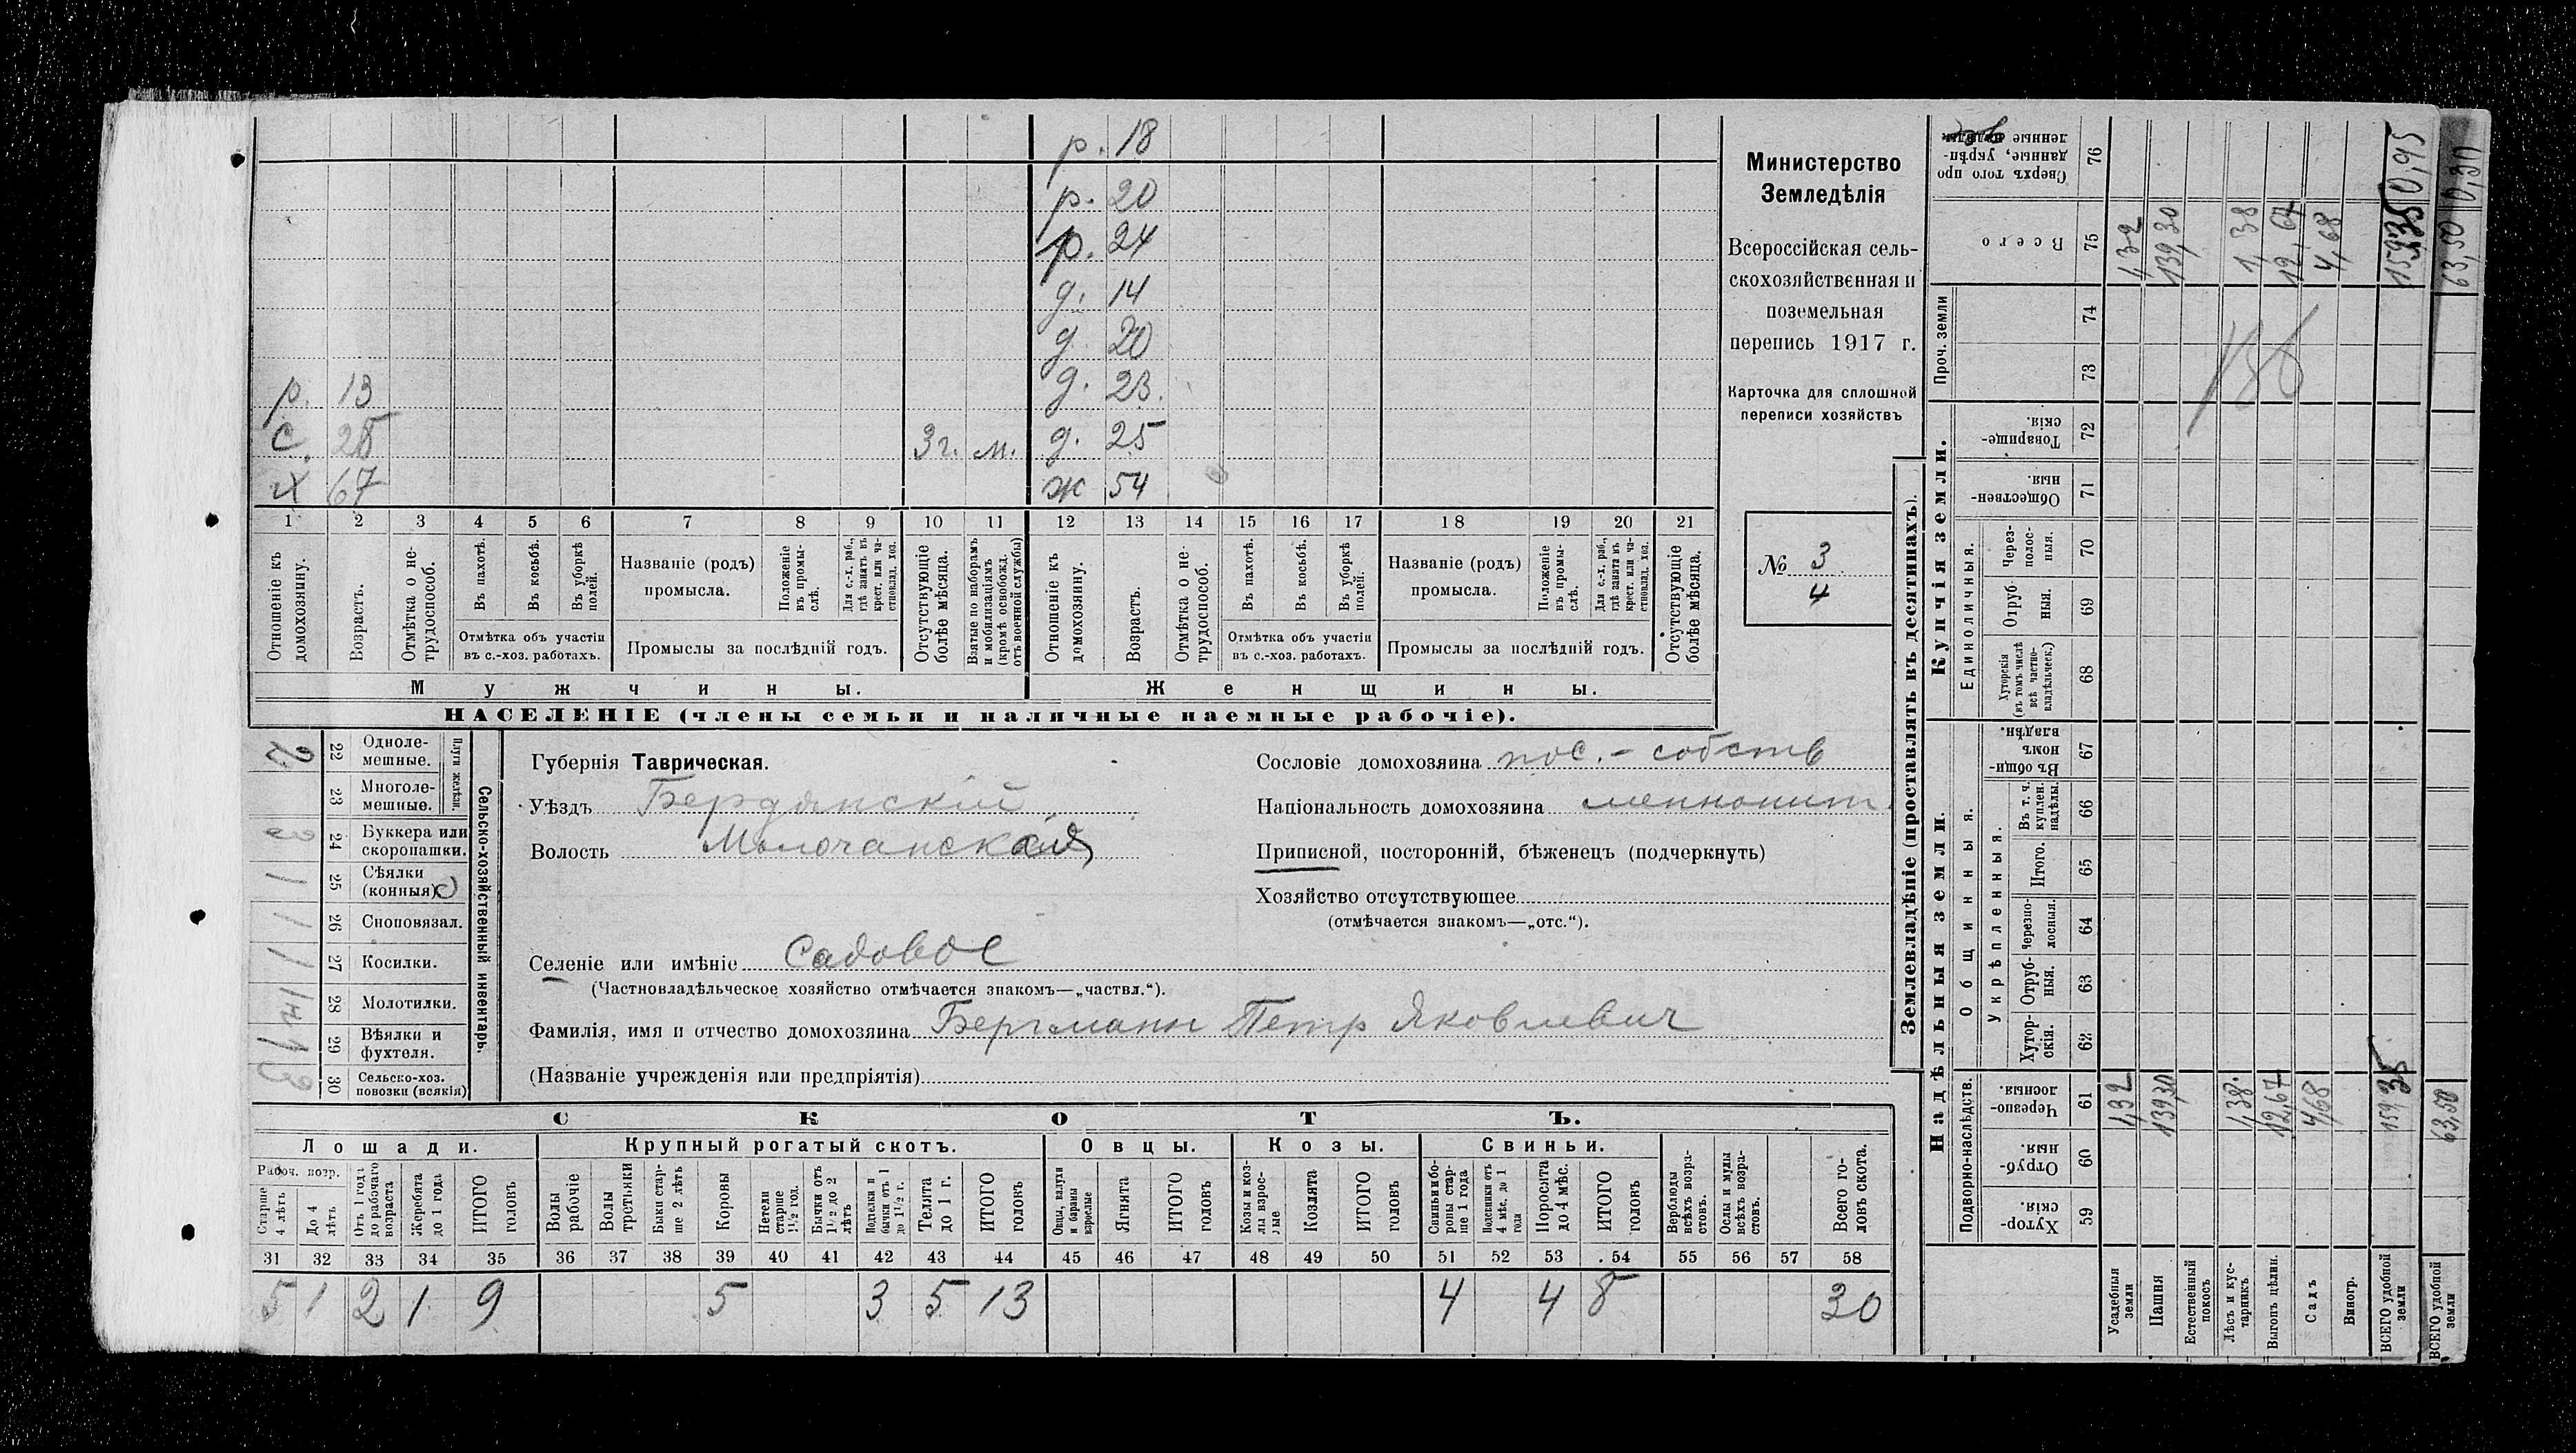 р. 18
р. 20
р. 24
д. 14
д. 20
р. 13 д. 23.
с. 28 3 г. м. д. 25
х 67 ж 54
1 2 3 4 5 6 7 8 9 10 11 12 13 14 15 16 17 18 19 20 21
Отношеніе къ домохозяину.
Возрастъ.
Отмѣтка о нетрудоспособ.
Въ пахотѣ.
Въ косьбѣ.
Въ уборкѣ полей.
Отмѣтка объ участіи
въ с.-хоз. работахъ.
Названіе (родъ)
промысла.
Положеніе въ промыслѣ.
Для с.-х. раб., гдѣ занятъ въ крест. или частновлад. хоз.
Промыслы за послѣдній годъ.
Отсутствующіе болѣе мѣсяца.
Взятые по наборамъ и мобилизаціямъ (кромѣ освобожд. отъ военной службы)
Отношеніе къ домохозяину.
Возрастъ.
Отмѣтка о нетрудоспособ.
Въ пахотѣ.
Въ косьбѣ.
Въ уборкѣ полей.
Отмѣтка объ участіи
въ с.-хоз. работахъ.
Названіе (родъ)
промысла.
Положеніе въ промыслѣ.
Для с.-х. раб., гдѣ занята въ крест. или частновлад. хоз.
Промыслы за послѣдній годъ.
Отсутствующіе болѣе мѣсяца.
Мужчины. Женщины.
НАСЕЛЕНІЕ (члены семьи и наличные наемные рабочіе).
Министерство
Земледѣлія
Всероссійская сель-
скохозяйственная и
поземельная
перепись 1917 г.
Карточка для сплошной
переписи хозяйствъ
№ 3
4
Сельско-хозяйственный инвентарь.
Плуги желѣзн.
22 Одноле-
мешные. 2
23 Многоле-
мешные.
24 Буккера или
скоропашки.
25 Сѣялки
(конныя) 1
26 Сноповязал. 1
27 Косилки. 1
28 Молотилки.
29 Вѣялки и
фухтеля. 1
30 Сельско-хоз.
повозки (всякія) 3
Губернія Таврическая.
Уѣздъ Бердянскій
Волость Молочанская
Сословіе домохозяина пос. - собств
Національность домохозяина меннонит.
Приписной, посторонній, бѣженецъ (подчеркнуть)
Хозяйство отсутствующее
(отмѣчается знакомъ—„отс.“).
Селеніе или имѣніе Садовое
(Частновладѣльческое хозяйство отмѣчается знакомъ—„частвл.“).
Фамилія, имя и отчество домохозяина Бергманн Петр Яковлевич
(Названіе учрежденія или предпріятія)
СКОТЪ.
Лошади. Крупный рогатый скотъ. Овцы. Козы. Свиньи.
Рабоч. возр.
Старше 4 лѣтъ
До 4 лѣтъ
Отъ 1 года до рабочаго возраста
Жеребята до 1 года
ИТОГО головъ
Волы рабочіе
Волы третьяки
Быки старше 2 лѣтъ
Коровы
Нетели старше 1½ год.
Бычки отъ 1½ до 2 лѣтъ
Подтелки и бычки отъ 1 до 1½ г.
Телята до 1 г.
ИТОГО головъ
Овцы, валухи и бараны взрослые
Ягнята
ИТОГО головъ
Козы и козлы взрослые
Козлята
ИТОГО головъ
Свиньи и боровы старше 1 года
Подсвинки отъ 4 мѣс. до 1 года
Поросята до 4 мѣс.
ИТОГО головъ
Верблюды всѣхъ возрастовъ.
Ослы и мулы всѣхъ возрастовъ.
Всего головъ скота.
31 32 33 34 35 36 37 38 39 40 41 42 43 44 45 46 47 48 49 50 51 52 53 54 55 56 57 58
5 1 2 1 9 5 3 5 13 4 4 8 30
Землевладѣніе (проставлять въ десятинахъ).
Надѣльныя земли.
Купчія земли.
Проч. земли
Подворно-наслѣдств.
Общинныя.
Укрѣпленныя.
Единоличныя.
59 Хутор-
скія.
60 Отруб-
ныя.
61 Черезпо-
лосныя.
62 Хутор-
скія.
63 Отруб-
ныя.
64 Черезпо-
лосныя.
65 Итого.
66 Въ т. ч.
куплен.
надѣлы.
67 Въ общи-
номъ
владѣн.
68 Хуторскія
(въ томъ числѣ
всѣ частно-
владѣльческ.)
69 Отруб
ныя.
70 Через-
полос-
ныя.
71 Обществен-
ныя.
72 Товарище-
скія.
73
74
75 Всего
76 Сверхъ того про
данные, укрѣп-
ленные
Усадебныя земли 1,32 1,32
Пашня 139,30 139,30
Естественный покосъ
Лѣсъ и кустарникъ 1,38 1,38
Выгонъ цѣлин. 12,67 12,67
Садъ 4,68 4,68
Виногр.
ВСЕГО удобной земли 159,35 159,35 0,95
ВСЕГО удобной земли 63,50 63,50 0,30